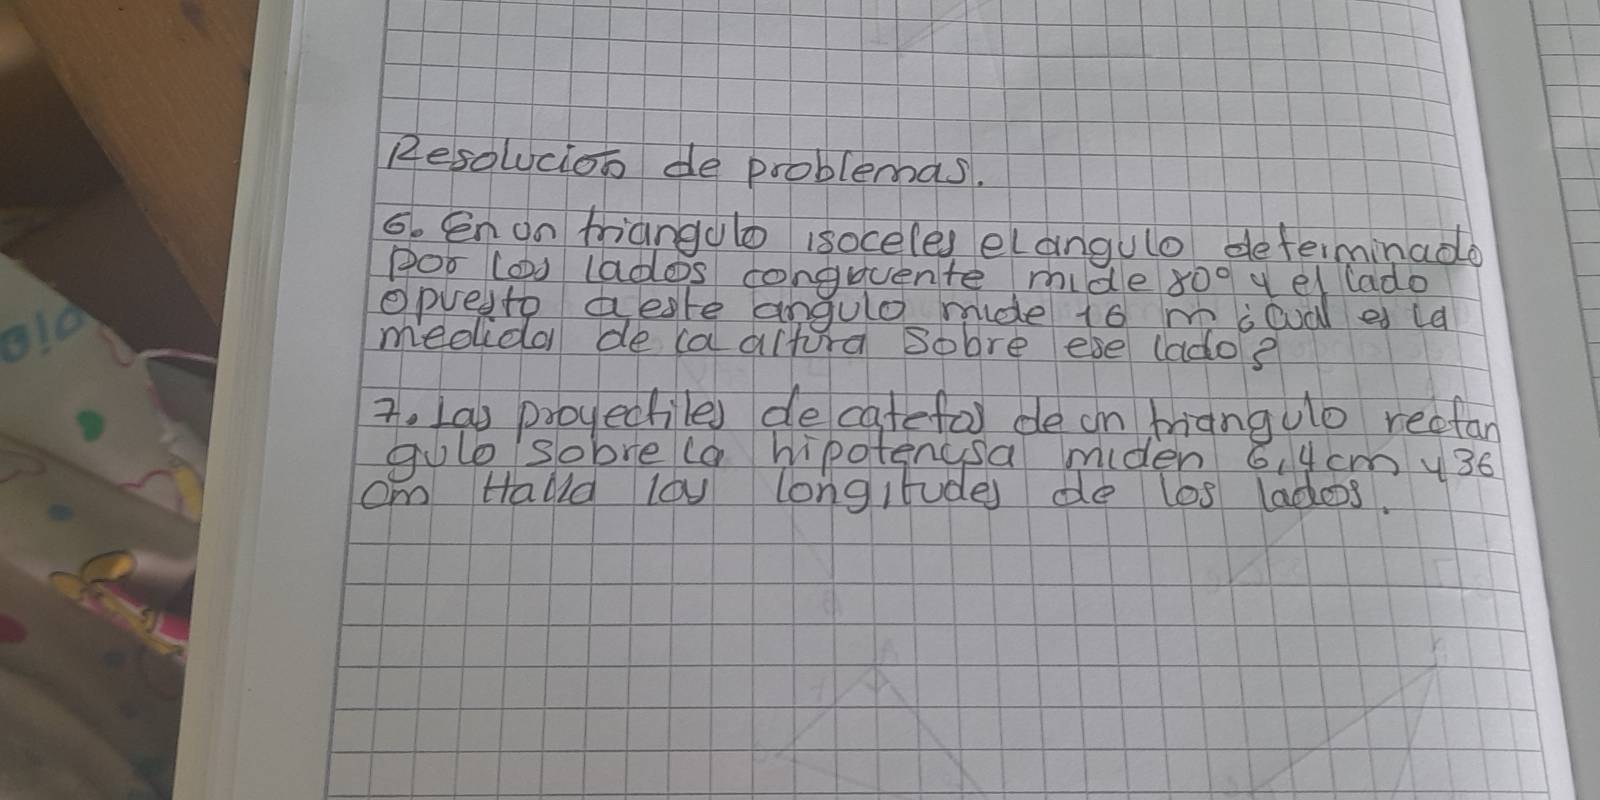 Resolucion de problemas.
6. En un triangulo isoceles el angulo determinado
por los lados congruente mide 80° y el lado
opuesto a este angulo mide 16 m ¿Cual es la
medida de la altura sobre ese lado?
7. Las proyectiles de catetos de un triangulo rectan
gulo sobre la hipotenusa miden 6,4cm y 36
cm Halla las longitudes de los lados.